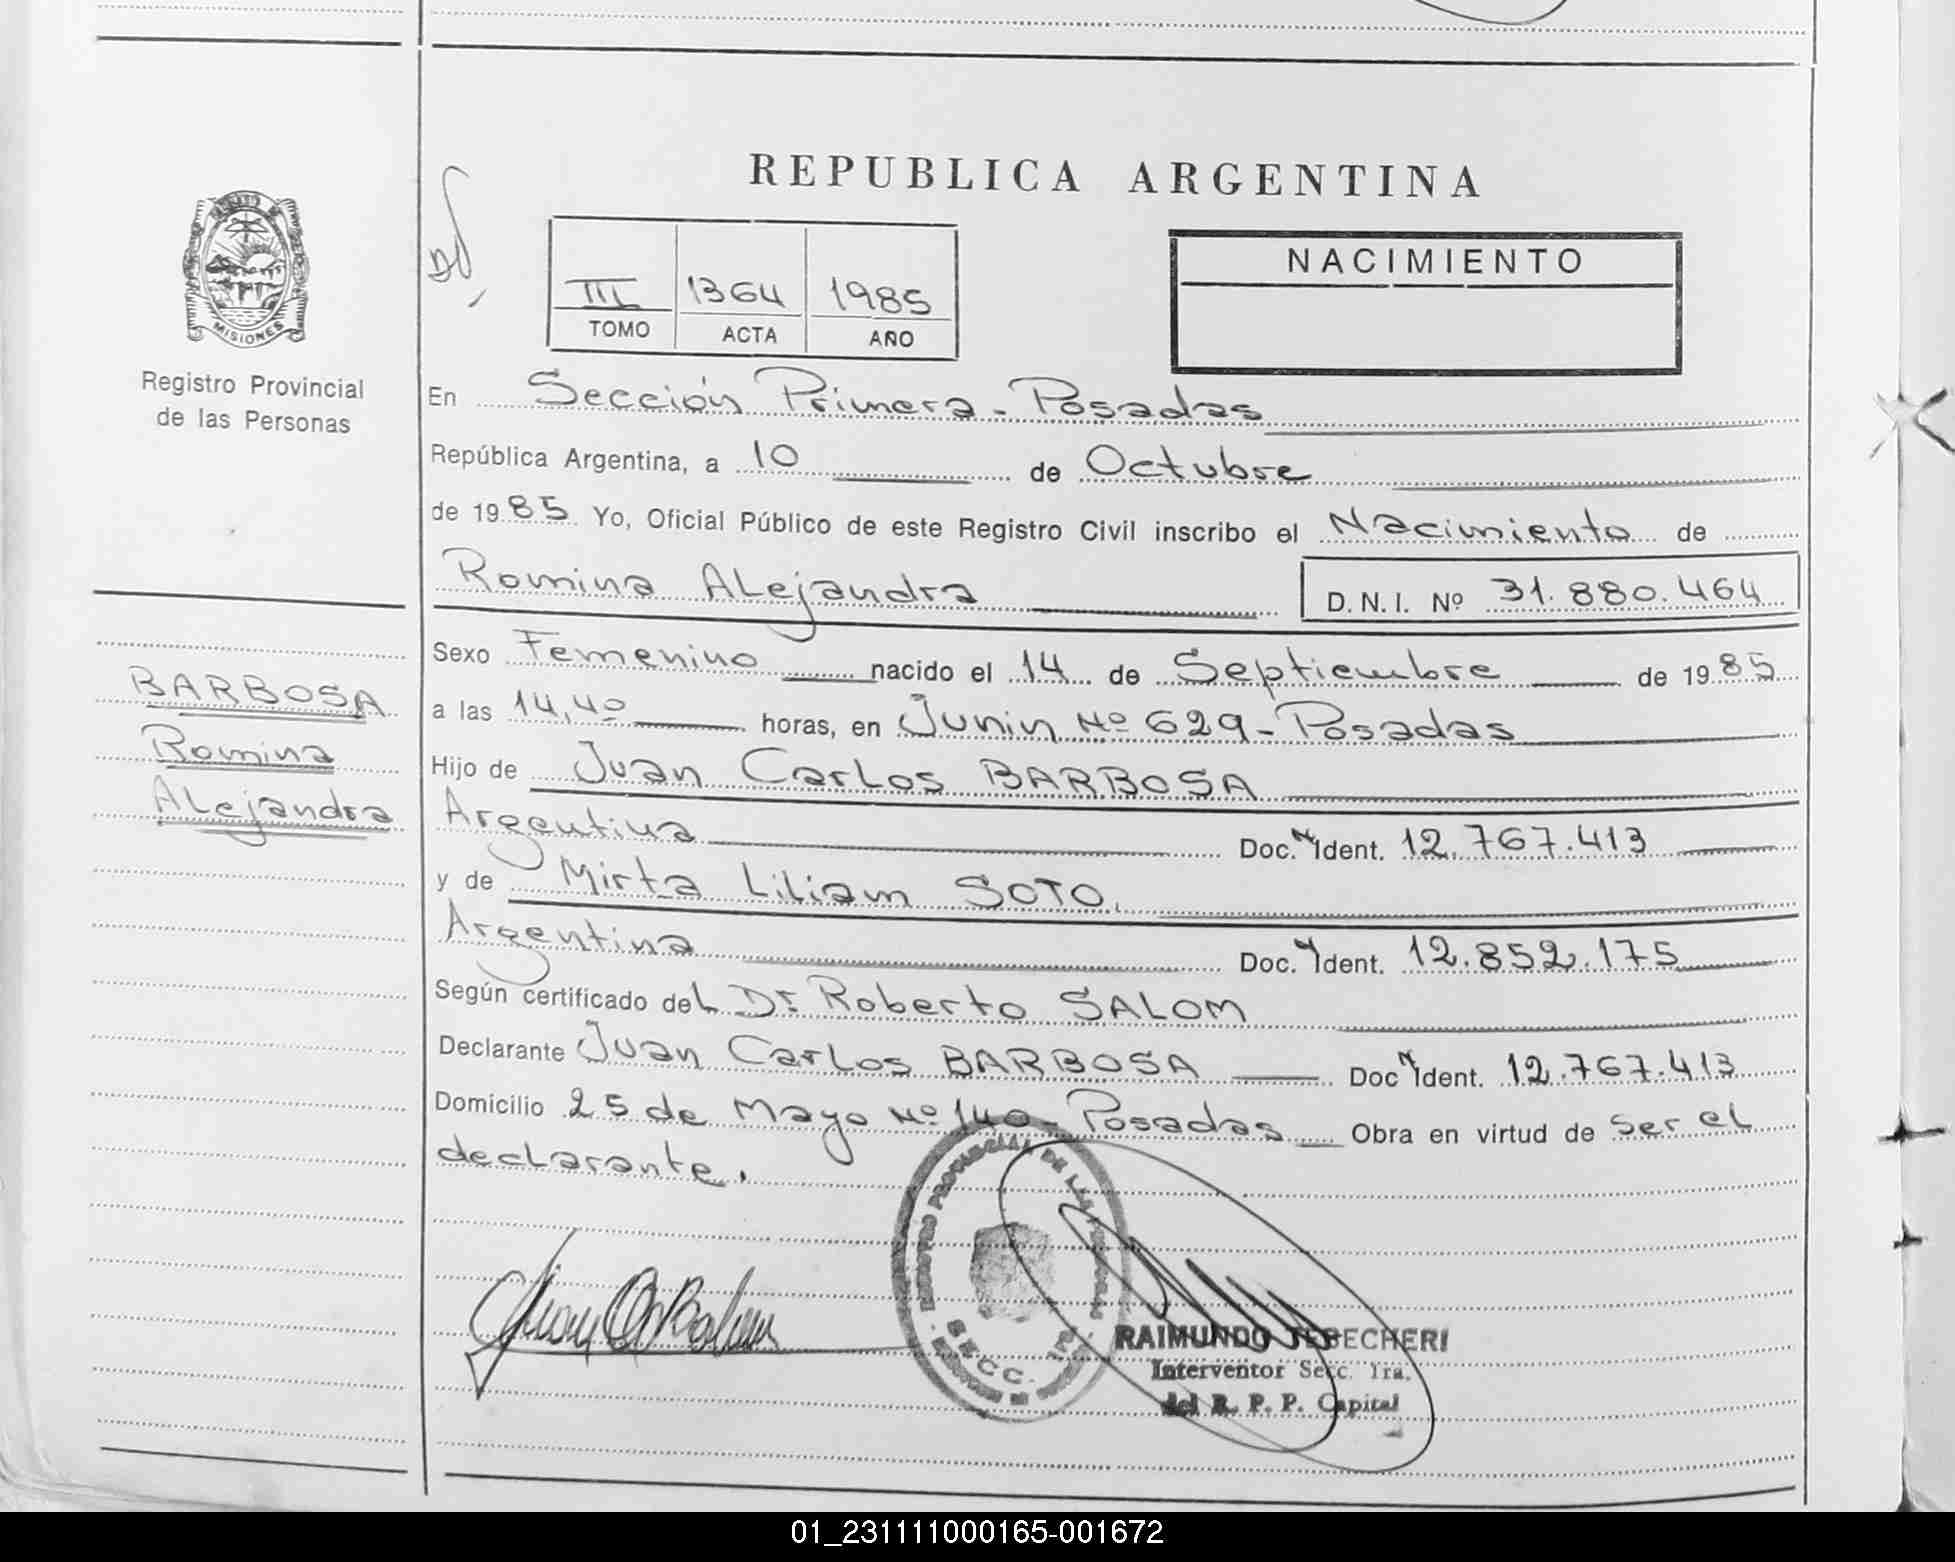 REPUBLICA ARGENTINA
MISIONES
Registro Provincial
de las Personas
III 1364 1985
TOMO ACTA AÑO
NACIMIENTO
En Sección Primera - Posadas
República Argentina, a 10 de Octubre
de 1985 Yo, Oficial Público de este Registro Civil inscribo el Nacimiento de
Romina Alejandra D.N.I. Nº 31.880.464
Sexo Femenino nacido el 14 de Septiembre de 1985
a las 14,40 horas, en Junin Nº 629 - Posadas
Hijo de Juan Carlos BARBOSA
Argentina Doc. N Ident. 12.767.413
y de Mirta Liliam SOTO.
Argentina Doc. Ident. 12.852.175
Según certificado del Dr. Roberto SALOM
Declarante Juan Carlos BARBOSA Doc N Ident. 12.767.413
Domicilio 25 de Mayo Nº 140 - Posadas Obra en virtud de ser el
declarante.
BARBOSA
Romina
Alejandra
REGISTRO PROVINCIAL DE LAS PERSONAS
SECC. 1ra
RAIMUNDO JEBECHERI
Interventor Secc. 1ra.
del R. P. P. Capital
01_231111000165-001672